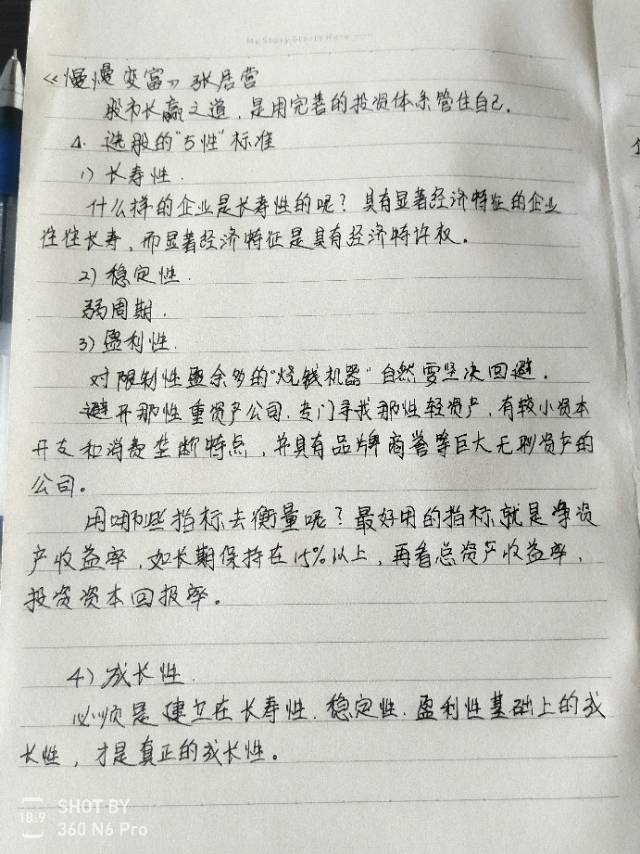 My Story Starts Here
《慢慢变富》张居营
股市长赢之道，是用完善的投资体系管住自己.
4. 选股的"5性"标准
1) 长寿性.
什么样的企业是长寿性的呢？具有显著经济特征的企业
往往长寿，而显著经济特征是具有经济特许权。
2) 稳定性.
弱周期.
3) 盈利性.
对限制性盈余多的"烧钱机器"自然要坚决回避.
避开那性重资产公司.专门寻找那性轻资产，有较小资本
开支和消费垄断特点，并具有品牌商誉等巨大无形资产的
公司。
用哪些指标去衡量呢？最好用的指标就是净资
产收益率，如长期保持在15%以上，再看总资产收益率、
投资资本回报率。
4) 成长性.
必须是建立在长寿性.稳定性.盈利性基础上的成
长性，才是真正的成长性。
18:9
SHOT BY
360 N6 Pro